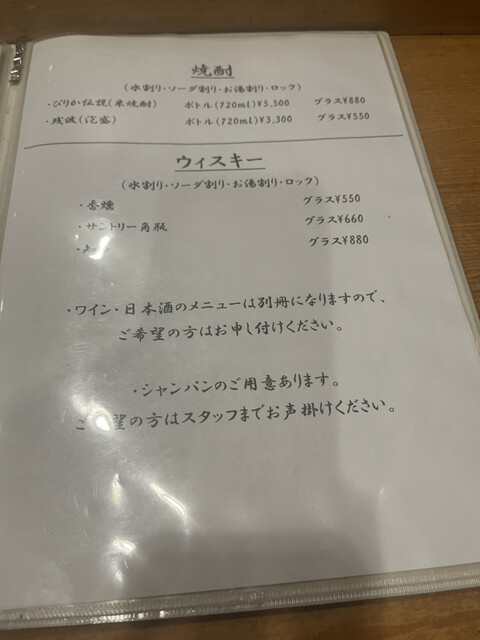 焼酎
(水割り・ソーダ割り・お湯割り・ロック)
・ぴりか伝説(米焼酎) ボトル(720ml)¥5,500 グラス¥880
・残波(泡盛) ボトル(720ml)¥3,300 グラス¥550
ウィスキー
(水割り・ソーダ割り・お湯割り・ロック)
・香燻 グラス¥550
・サントリー角瓶 グラス¥660
・知 グラス¥880
・ワイン・日本酒のメニューは別冊になりますので、
ご希望の方はお申し付けください。
・シャンパンのご用意あります。
ご希望の方はスタッフまでお声掛けください。